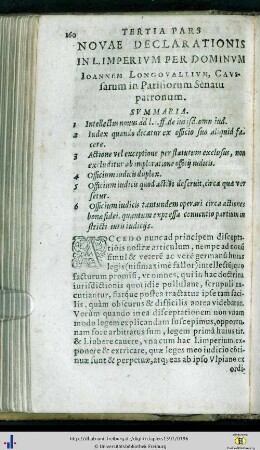 160 TERTIA PARS
NOVAE DECLARATIONIS
IN L. IMPERIVM PER DOMINVM
IOANNEM LONGOVALLIVM, CAVS-
sarum in Parisiorum Senatu
patronum.
SVMMARIA.
1 Intellectus nouus ad l. ff. de iurisd. omn iud.
2 Iudex quando dicatur ex officio suo aliquid fa-
cere.
3 Actione vel exceptione per statutum exclusis, non
excluditur ab imploratione officij iudicis.
4 Officium iudicis duplex.
5 Officium iudicis quod actioni deseruit, circa quæ ver
setur.
6 Officium iudicis tantundem operari circa actiones
bonæ fidei, quantum expressa conuentio partium in
stricti iuris iudicijs.
ACCEDO nunc ad principem discepta-
tionis nostræ articulum, nempe ad eam
simul & verere ac vere germanâ huius
legis (nisi maxime fallor) intellectus, pro
facturum promisi, vt omnes, qui in hac doctrina
iurisdictionis quotidie pollulant, scrupuli ex-
cutiantur, fiatque posteà tractatus ipse tam faci-
lis, quàm obscurus & difficilis anteà videbatur.
Verùm quando inea disceptationem non vnam
modo legem explicandam suscepimus, opportu-
nam fore arbitratus sum, legem primâ huius tit.
& Libere cauere, vnacum hac L. imperium, ex-
ponere & extricare, quæ leges meo iudicio obti-
nuæ sunt & perpetuæ, atque eas ab ipso Vlpiano ex
ordi-
http://dl.ub.uni-freiburg.de/diglit/duplois1591/0196
© Universitätsbibliothek Freiburg